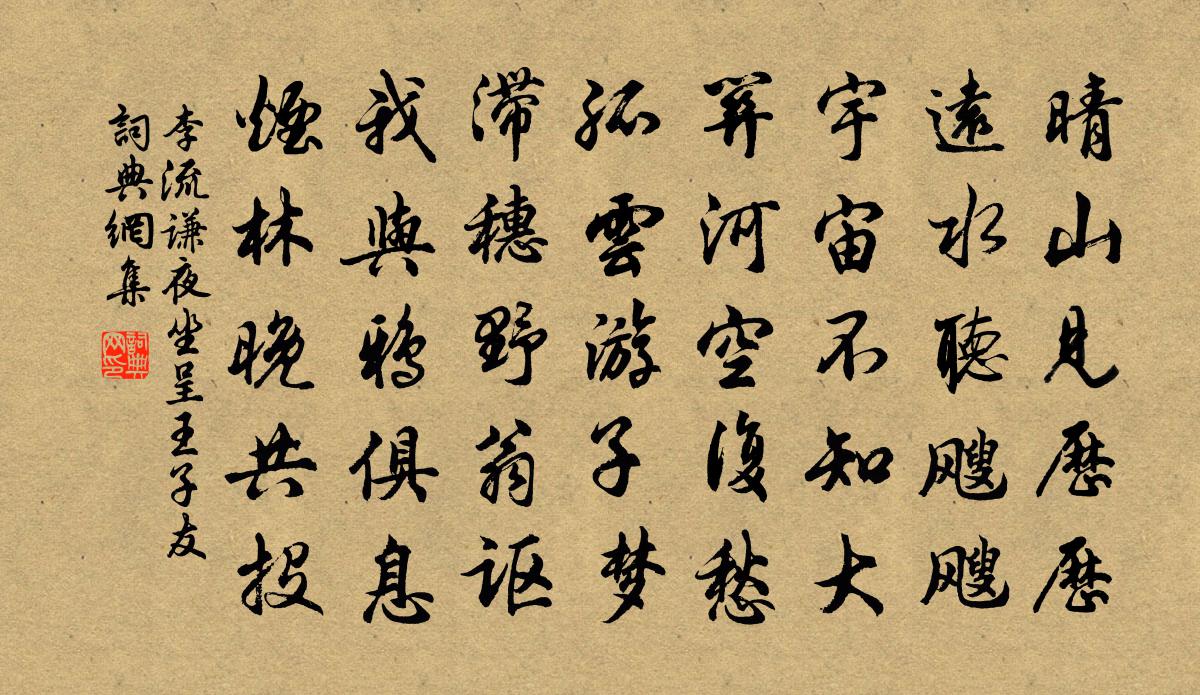 晴山見歷歷
遠水聽颼颼
宇宙不知大
關河空復愁
孤雲游子夢
滯穗野翁謳
我與鴉俱息
煙林晚共投
李流謙夜坐呈王子友
詞典網集
詞典網印